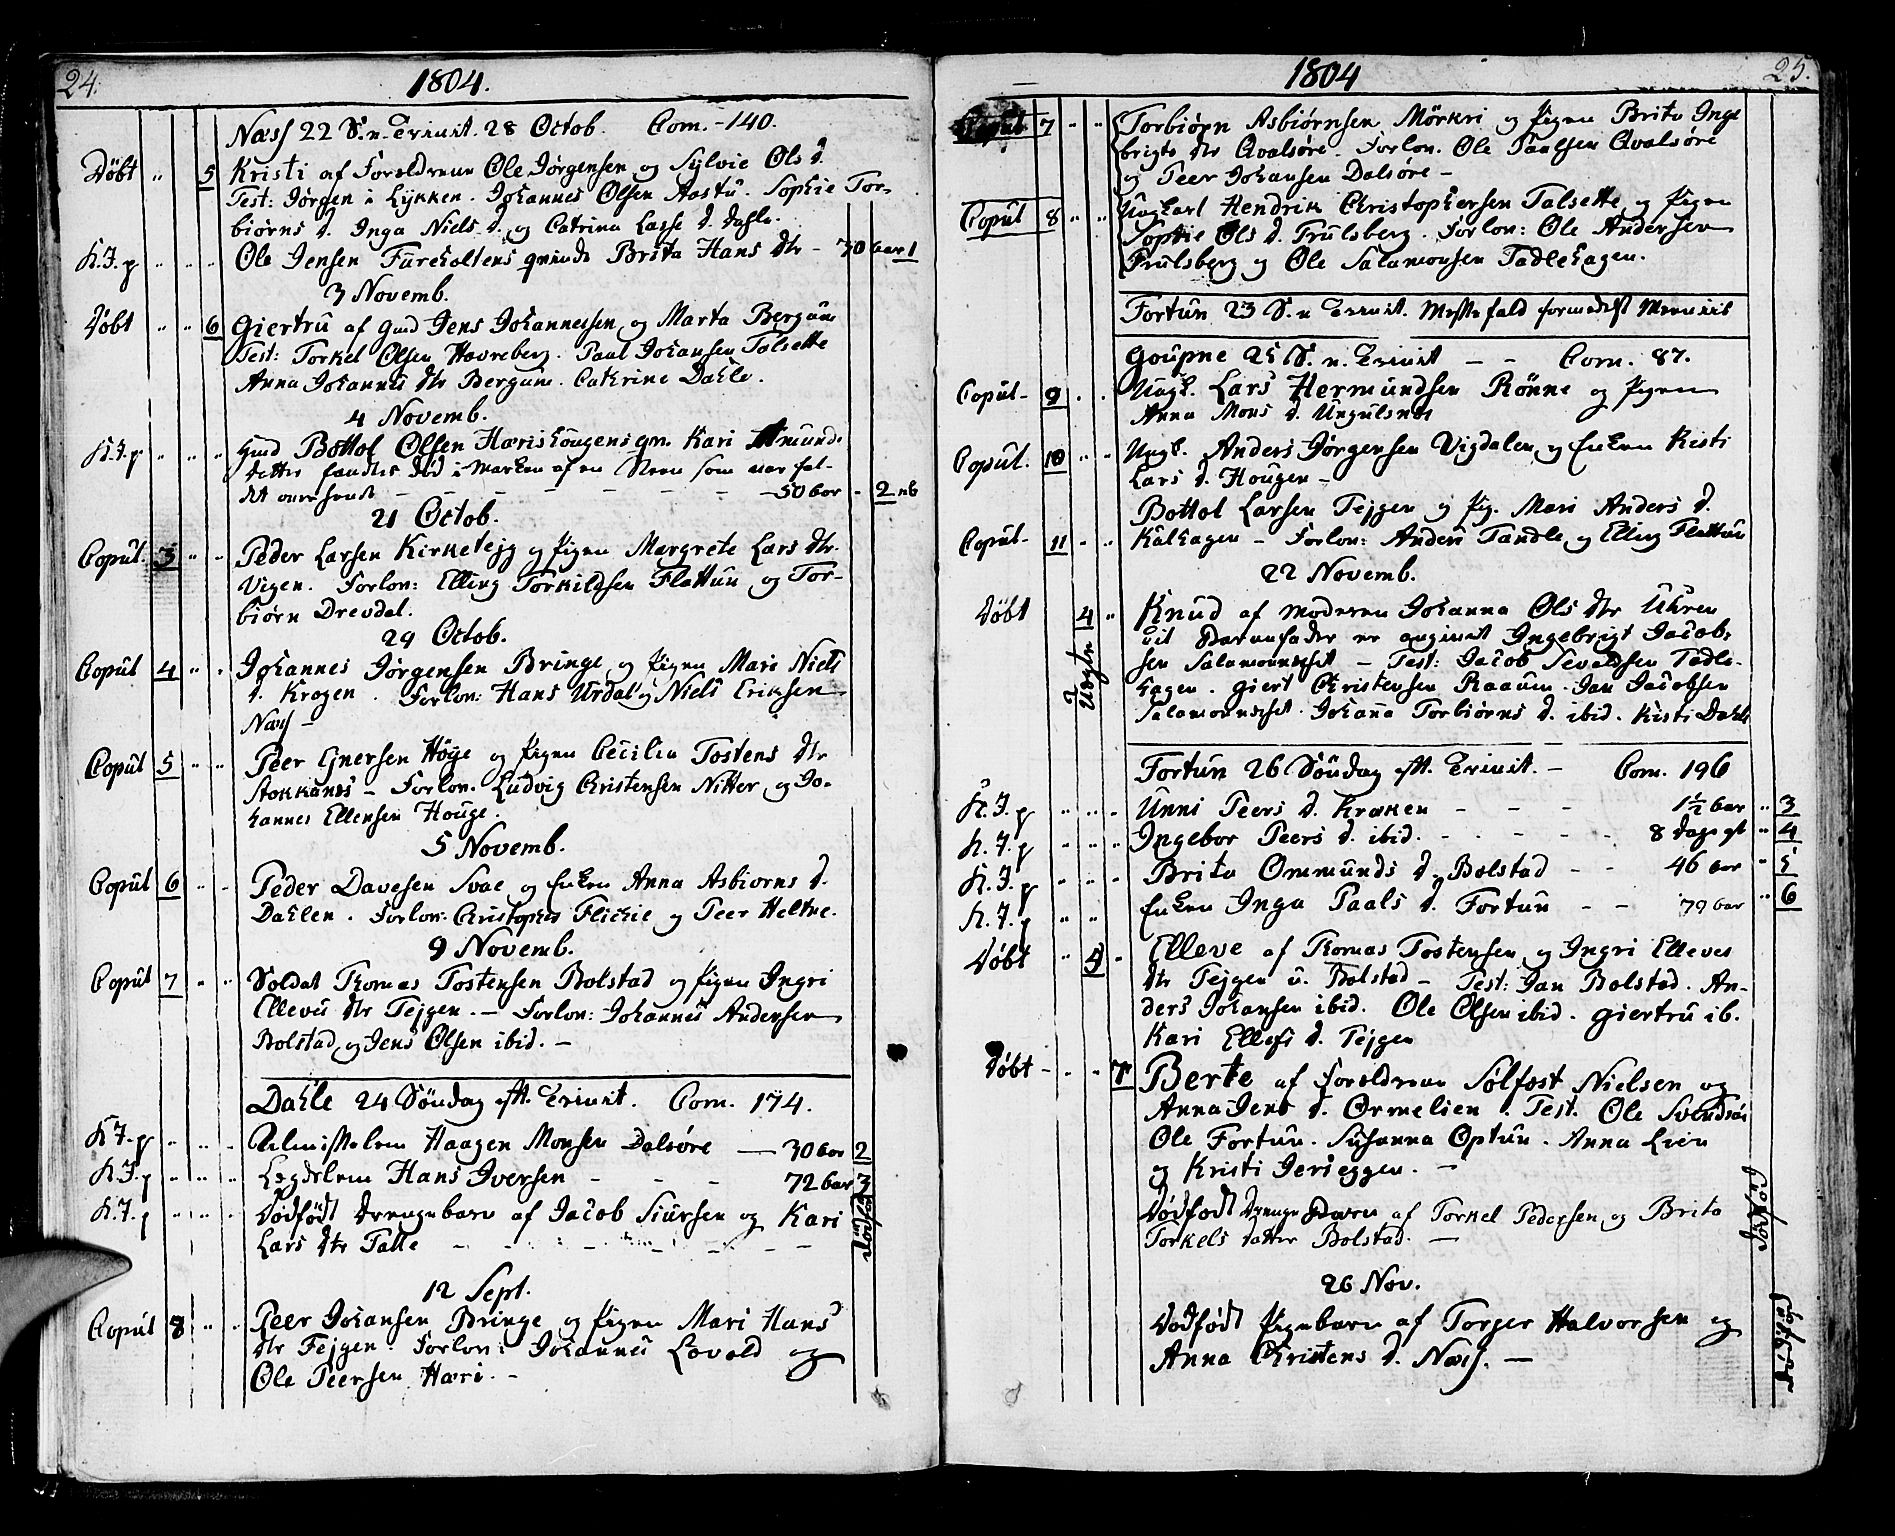 24.
1804.
Næss 22 S. n. Trinit. 28 Octob. Com. - 140.
Döbt " 5 Kristi af Foreldrene Ole Jørgensen og Sylvie Ols d.
Test: Jørgen i Lykken. Johannes Olsen Aastu. Sophie Tor-
biørns d. Inga Niels d. og Catrina Lasse d. Dahle.
K.J.p " " " Ole Jensen Fureholtens qvinde Brita Hans dtr - 70 aar 1
3 Novemb.
Döbt " " 6 Giertru af gmd Jens Johannessen og Marta Bergum
Test: Torkel Olsen Havreberg. Paal Johansen Talsette
Anna Johannes dtr Bergum. Cathrine Dahle.
4 Novemb.
K.J.p " " " Gmd Bottol Olsen Hærishougens qv. Kari Amunds
datter fandtes död i Marken af en Steen som var fal-
det over hende - - - - - 50 aar - 2 nb
21 Octob.
Copul. 3 " " Peder Larsen Kirketejg og Pigen Margrete Lars dtr.
Vigen. Forlov: Elling Torkildsen Flattun og Tor-
biørn Drevdal.
29 Octob.
Copul 4 " " Johannes Jørgensen Bringe og Pigen Mari Niels
d. Krogen. Forlov: Hans Urdal og Niels Eriksen
Næss -
Copul 5 " " Peer Ejnersen Høye og Pigen Cecilia Tostens dtr
Stokkanes - Forlov. Ludvig Christensen Nitter og Jo-
hannes Ellensen Houge.
5 Novemb.
Copul 6 " " Peder Davesen Svae og Enken Anna Asbiorns d.
Dahlen. Forlov: Christopher Flickie og Peer Heltne.
9 Novemb.
Copul 7 " " Soldat Thomas Tostensen Bolstad og Pigen Ingri
Ellevs dtr Tejgen. - Forlov: Johannes Andersen
Bolstad og Jens Olsen ibid. -
Dahle 24 Söndag eft. Trinit. Com. 174.
K.J.p " " " Almisselem Haagen Monsen Dalsøre - 30 aar 2
K.J.p " " " Legdelem Hans Iversen - - - 72 aar 3
K.J.p " " " Dödfödt Drengebarn af Jacob Siursen og Kari
Lars dtr Talle - - - - - dödfød
12 Sept.
Copul 8 " " Peer Johansen Bringe og Pigen Mari Hans
dtr Fejgen. Forlov: Johannes Lovold og
Ole Peersen Hæri. -
1804
25.
Copul 7 " " Torbiörn Asbiörnsen Mörkri og Pigen Brita Inge
brigts dtr Qvalsøre. Forlov. Ole Paalsen Qvalsøre
og Peer Johansen Dalsøre -
Copul 8 " " Ungkarl Hendrik Christophersen Talsette og Pigen
Sophie Ols d. Prulsberg. Forlov: Ole Andersen
Prulsberg og Ole Salamonsen Tadlehagen.
Fortun 23 S. n Trinit. Messefald formedelst
Goupne 25 S. n. Trinit - - Com. 87.
Copul- 9 . . Ungk. Lars Hermundsen Rönne og Pigen
Anna Mons d. Ungulsnes
Copul. 10 " " Ungk. Anders Jørgensen Vigdalen og Enken Kisti
Lars d. Hougen -
Bottol Larsen Tejgen og Pig. Mari Anders d.
Copul- 11 - " Kalhagen - Forlov: Anders Tandle og Elling Flattun
22 Novemb.
Döbt 4 " Knud af Moderen Johanna Ols dtr Uhren
til Barnefader er angivet Ingebrigt Jacob-
sen Salamonsset - Test: Jacob Sevaldsen Tadle-
hagen. Giert Christensen Raaum. Jan Jacobsen
Salamonsset. Johanna Torbiørns d. ibid. Kisti Dahle
Uægte
Fortun 26 Söndag eft. Trinit. - Com. 196
K.J.p " " " Unni Peers d. Kræken - - - 1½ aar " 3
K.J.p " " " Ingebor Peers d. ibid. - - - - 8 dage gl " 4
K.J.p " " " Brita Ommunds d. Bolstad - - 46 aar " 5
K.J.p " " Enken Inga Paals d. Fortun - - 79 aar " 6
Döbt " 5 - Elleve af Thomas Tostensen og Ingri Elleves
dtr Tejgen u. Bolstad - Test: Jan Bolstad. An-
ders Johansen ibid. Ole Olsen ibid. Giertru ib.
Kari Ellefs d. Tejgen
Döbt - - " 7 Berte af Foreldrene Sölfest Nielsen og
Anna Jens d. Ormelien. Test. Ole Svendsøe
Ole Fortun. Susanna Optun. Anna Lien
og Kristi Jerseggen. -
Dödfødt Drenge Barn af Torkel Pedersen og Brita
Torkels datter Bolstad. - dödföd
26 Nov.
Dödfödt Pigebarn af Torger Halvorsen og
Anna Christens d. Næss. - dödföd